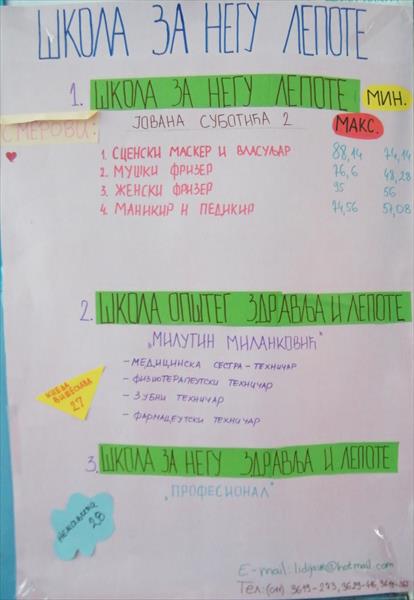 ШКОЛА ЗА НЕГУ ЛЕПОТЕ
1. ШКОЛА ЗА НЕГУ ЛЕПОТЕ МИН.
СМЕРОВИ: ЈОВАНА СУБОТИЋА 2 МАКС.
1. СЦЕНСКИ МАСКЕР И ВЛАСУЉАР 88,14 74,14
2. МУШКИ ФРИЗЕР 76,6 48,28
3. ЖЕНСКИ ФРИЗЕР 95 56
4. МАНИКИР И ПЕДИКИР 74,56 57,08
2. ШКОЛА ОПШТЕГ ЗДРАВЉА И ЛЕПОТЕ
„МИЛУТИН МИЛАНКОВИЋ"
- МЕДИЦИНСКА СЕСТРА - ТЕХНИЧАР
- ФИЗИОТЕРАПЕУТСКИ ТЕХНИЧАР
- ЗУБНИ ТЕХНИЧАР
- ФАРМАЦЕУТСКИ ТЕХНИЧАР
КНЕЗА
ВИШЕСЛАВА
27
3. ШКОЛА ЗА НЕГУ ЗДРАВЉА И ЛЕПОТЕ
„ПРОФЕСИОНАЛ"
Немањина
28
E-mail: @hotmail.com
Тел: (011) 3619-273,